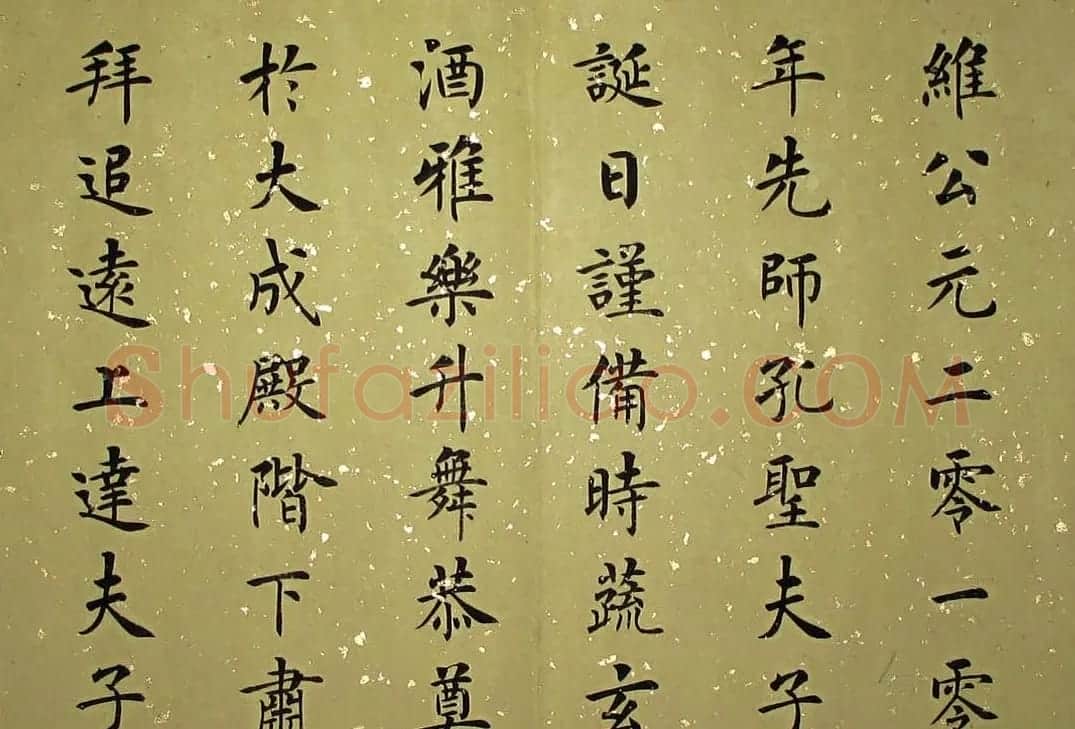 維公元二零一零
年先師孔聖夫子
誕日謹備時蔬玄
酒雅樂升舞恭奠
於大成殿階下肅
拜追遠上達夫子
Shufaziliao.COM